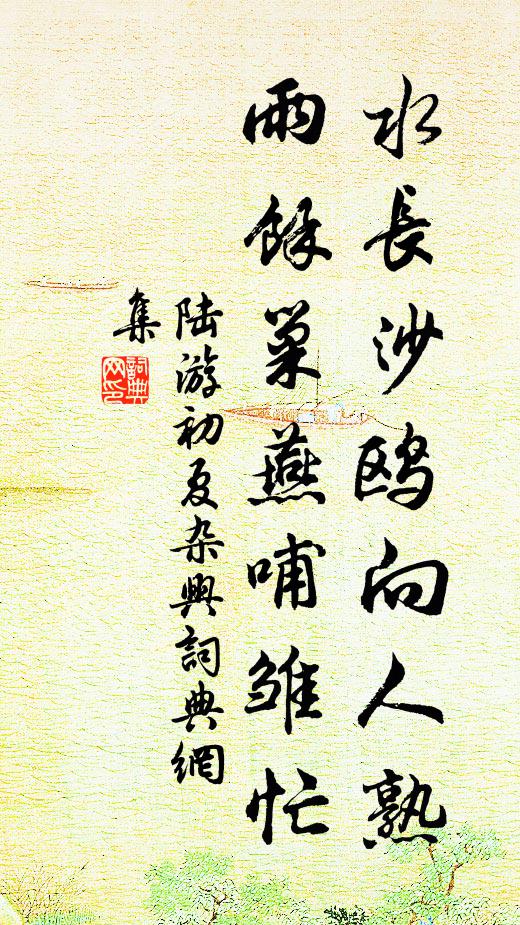 水長沙鸥向人熟
雨餘巢燕哺雏忙
陆游初夏杂興詞典網
集
詞典
网印